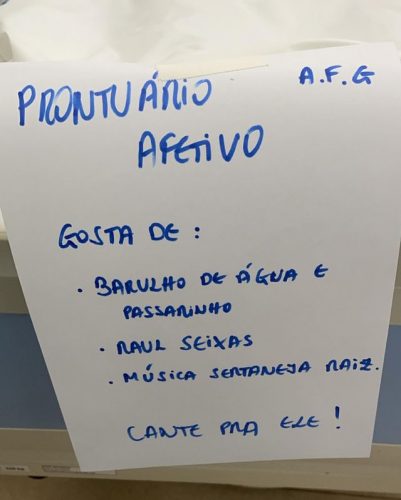 PRONTUÁRIO A.F.G
AFETIVO
GOSTA DE :
. BARULHO DE ÁGUA E
PASSARINHO
. RAUL SEIXAS
. MÚSICA SERTANEJA RAIZ.
CANTE PRA ELE !